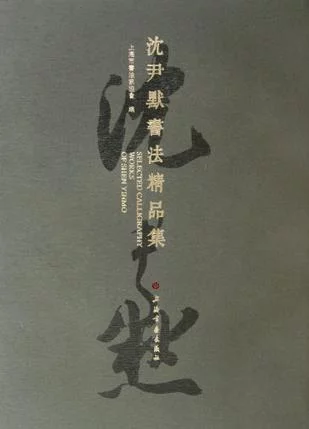 沈尹默書法精品集
上海市書法家協會 編
SELECTED CALLIGRAPHY
WORKS
OF SHEN YINMO
上海書畫出版社
沈尹默